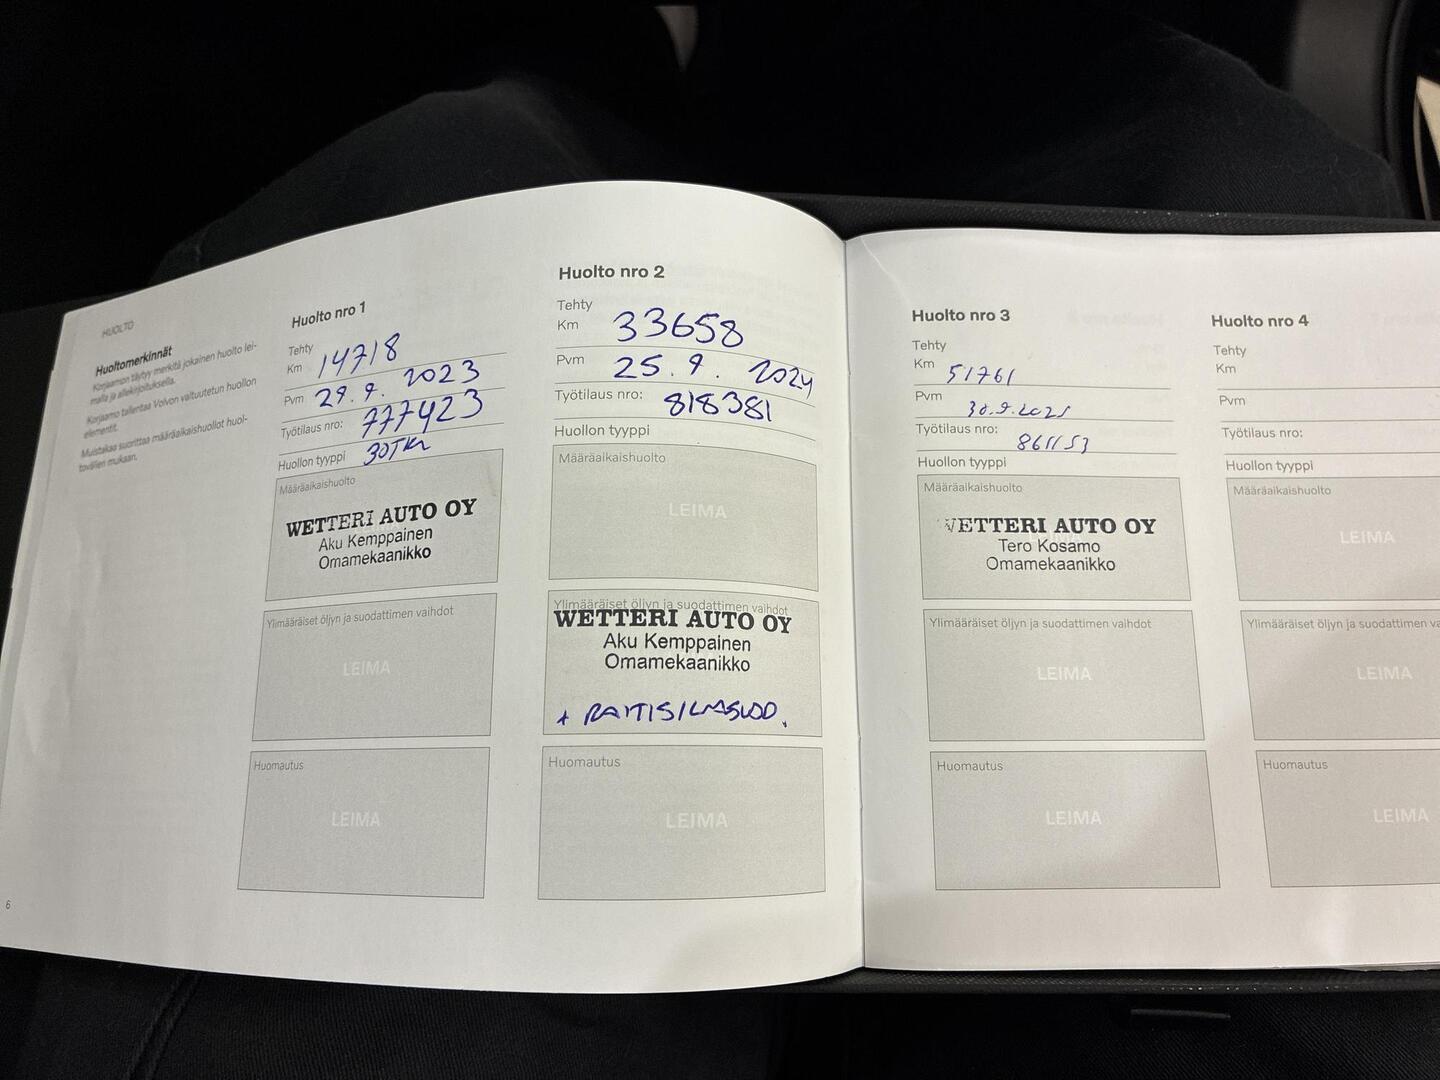 HUOLTO
Huoltomerkinnät
Korjaamon täytyy merkitä jokainen huolto lei-
malla ja allekirjoituksella.
Korjaamo tallentaa Volvon valtuutetun huollon
elementit.
Muistakaa suorittaa määräaikaishuollot huol-
tovälien mukaan.
6
Huolto nro 1
Tehty
Km 14718
Pvm 29.9.2023
Työtilaus nro: 777423
Huollon tyyppi 30TKM
Määräaikaishuolto
WETTERI AUTO OY
Aku Kemppainen
Omamekaanikko
Ylimääräiset öljyn ja suodattimen vaihdot
LEIMA
Huomautus
LEIMA
Huolto nro 2
Tehty
Km 33658
Pvm 25.9.2024
Työtilaus nro: 818381
Huollon tyyppi
Määräaikaishuolto
LEIMA
Ylimääräiset öljyn ja suodattimen vaihdot
WETTERI AUTO OY
Aku Kemppainen
Omamekaanikko
+ RAITISILMASUOD.
Huomautus
LEIMA
Huolto nro 3
Tehty
Km 51761
Pvm 30.9.2025
Työtilaus nro: 861153
Huollon tyyppi
Määräaikaishuolto
LEIMA
WETTERI AUTO OY
Tero Kosamo
Omamekaanikko
Ylimääräiset öljyn ja suodattimen vaihdot
LEIMA
Huomautus
LEIMA
Huolto nro 4
Tehty
Km
Pvm
Työtilaus nro:
Huollon tyyppi
Määräaikaishuolto
LEIMA
Ylimääräiset öljyn ja suodattimen va
LEIMA
Huomautus
LEIMA